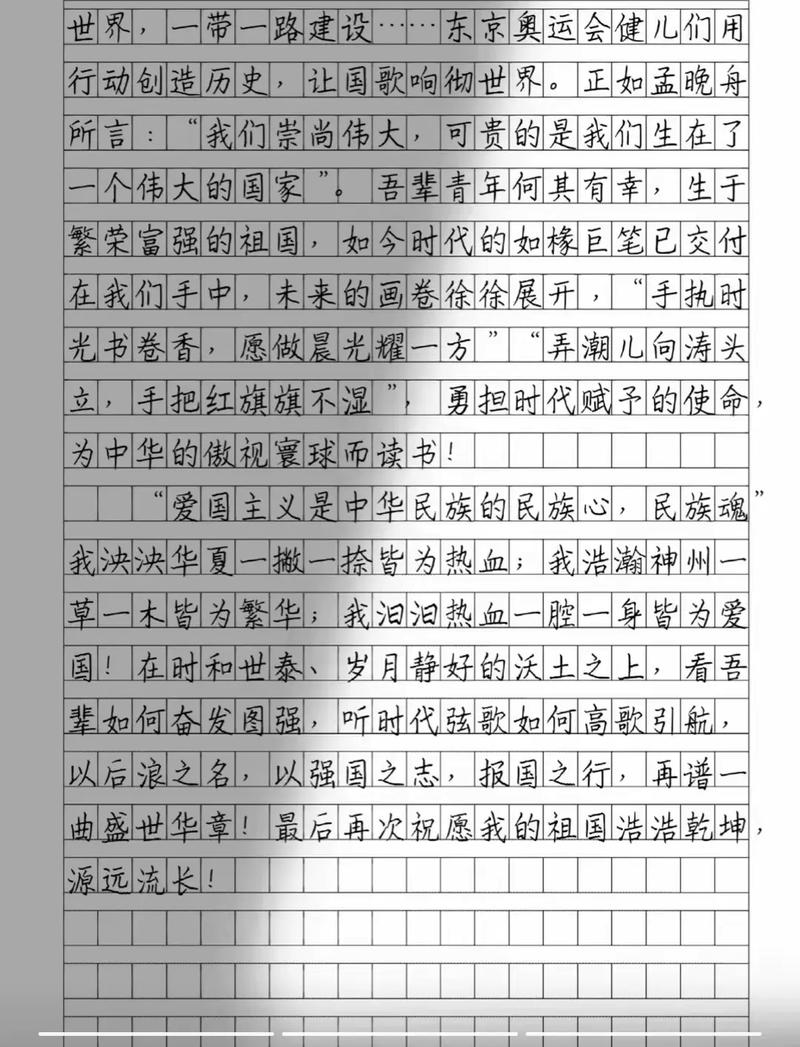 世界，一带一路建设……东京奥运会健儿们用
行动创造历史，让国歌响彻世界。正如孟晚舟
所言：“我们崇尚伟大，可贵的是我们生在了
一个伟大的国家”。吾辈青年何其有幸，生于
繁荣富强的祖国，如今时代的如椽巨笔已交付
在我们手中，未来的画卷徐徐展开，“手执时
光书卷香，愿做晨光耀一方”“弄潮儿向涛头
立，手把红旗旗不湿”，勇担时代赋予的使命，
为中华的傲视寰球而读书！
“爱国主义是中华民族的民族心，民族魂”
我泱泱华夏一撇一捺皆为热血；我浩瀚神州一
草一木皆为繁华；我汩汩热血一腔一身皆为爱
国！在时和世泰、岁月静好的沃土之上，看吾
辈如何奋发图强，听时代弦歌如何高歌引航，
以后浪之名，以强国之志，报国之行，再谱一
曲盛世华章！最后再次祝愿我的祖国浩浩乾坤，
源远流长！